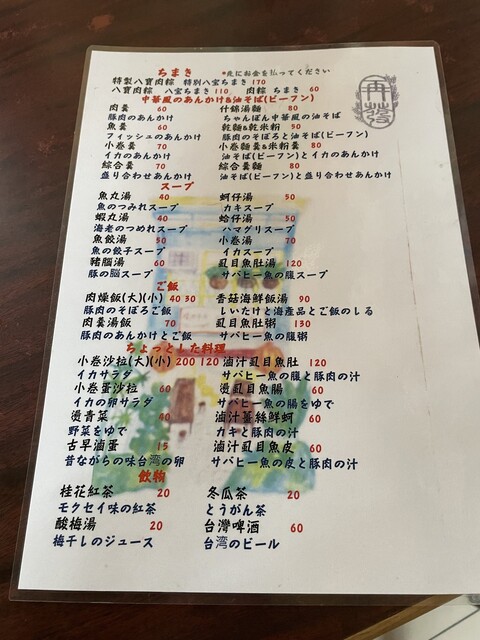 ちまき *先にお金を払ってください
特製八寶肉粽 特別八宝ちまき 170
八寶肉粽 八宝ちまき 110 肉粽 ちまき 60
中華風のあんかけ&油そば(ビーフン)
肉羹 60 什錦湯麵 80
豚肉のあんかけ ちゃんぽん中華風の油そば
魚羹 60 乾麵&乾米粉 50
フィッシュのあんかけ 豚肉のそぼろと油そば(ビーフン)
小卷羹 70 小卷麵羹&米粉羹 80
イカのあんかけ 油そば(ビーフン)とイカのあんかけ
綜合羹 70 綜合羹麵 80
盛り合わせあんかけ 油そば(ビーフン)と盛り合わせあんかけ
スープ
魚丸湯 40 蚵仔湯 50
魚のつみれスープ カキスープ
蝦丸湯 40 蛤仔湯 50
海老のつめれスープ ハマグリスープ
魚餃湯 50 小卷湯 70
魚の餃子スープ イカスープ
豬腦湯 60 虱目魚肚湯 120
豚の脳スープ サバヒー魚の腹スープ
ご飯
肉燥飯(大)(小) 40 30 香菇海鮮飯湯 90
豚肉のそぼろご飯 しいたけと海産品とご飯のしる
肉羹湯飯 70 虱目魚肚粥 130
豚肉のあんかけとご飯 サバヒー魚の腹粥
ちょっとした料理
小卷沙拉(大)(小) 200 120 滷汁虱目魚肚 120
イカサラダ サバヒー魚の腹と豚肉の汁
小卷蛋沙拉 60 燙虱目魚腸 60
イカの卵サラダ サバヒー魚の腸をゆで
燙青菜 40 滷汁薑絲鮮蚵 60
野菜をゆで カキと豚肉の汁
古早滷蛋 15 滷汁虱目魚皮 60
昔ながらの味台湾の卵 サバヒー魚の皮と豚肉の汁
飲物
桂花紅茶 20 冬瓜茶 20
モクセイ味の紅茶 とうがん茶
酸梅湯 20 台灣啤酒 60
梅干しのジュース 台湾のビール